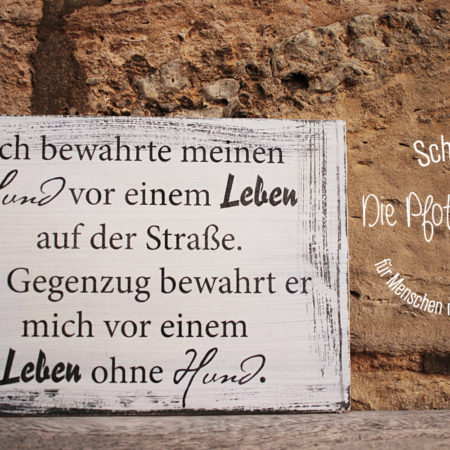 ch bewahrte meinen
Hund vor einem Leben
auf der Straße.
Gegenzug bewahrt er
mich vor einem
Leben ohne Hund.
Sch
Die Pfot
für Menschen